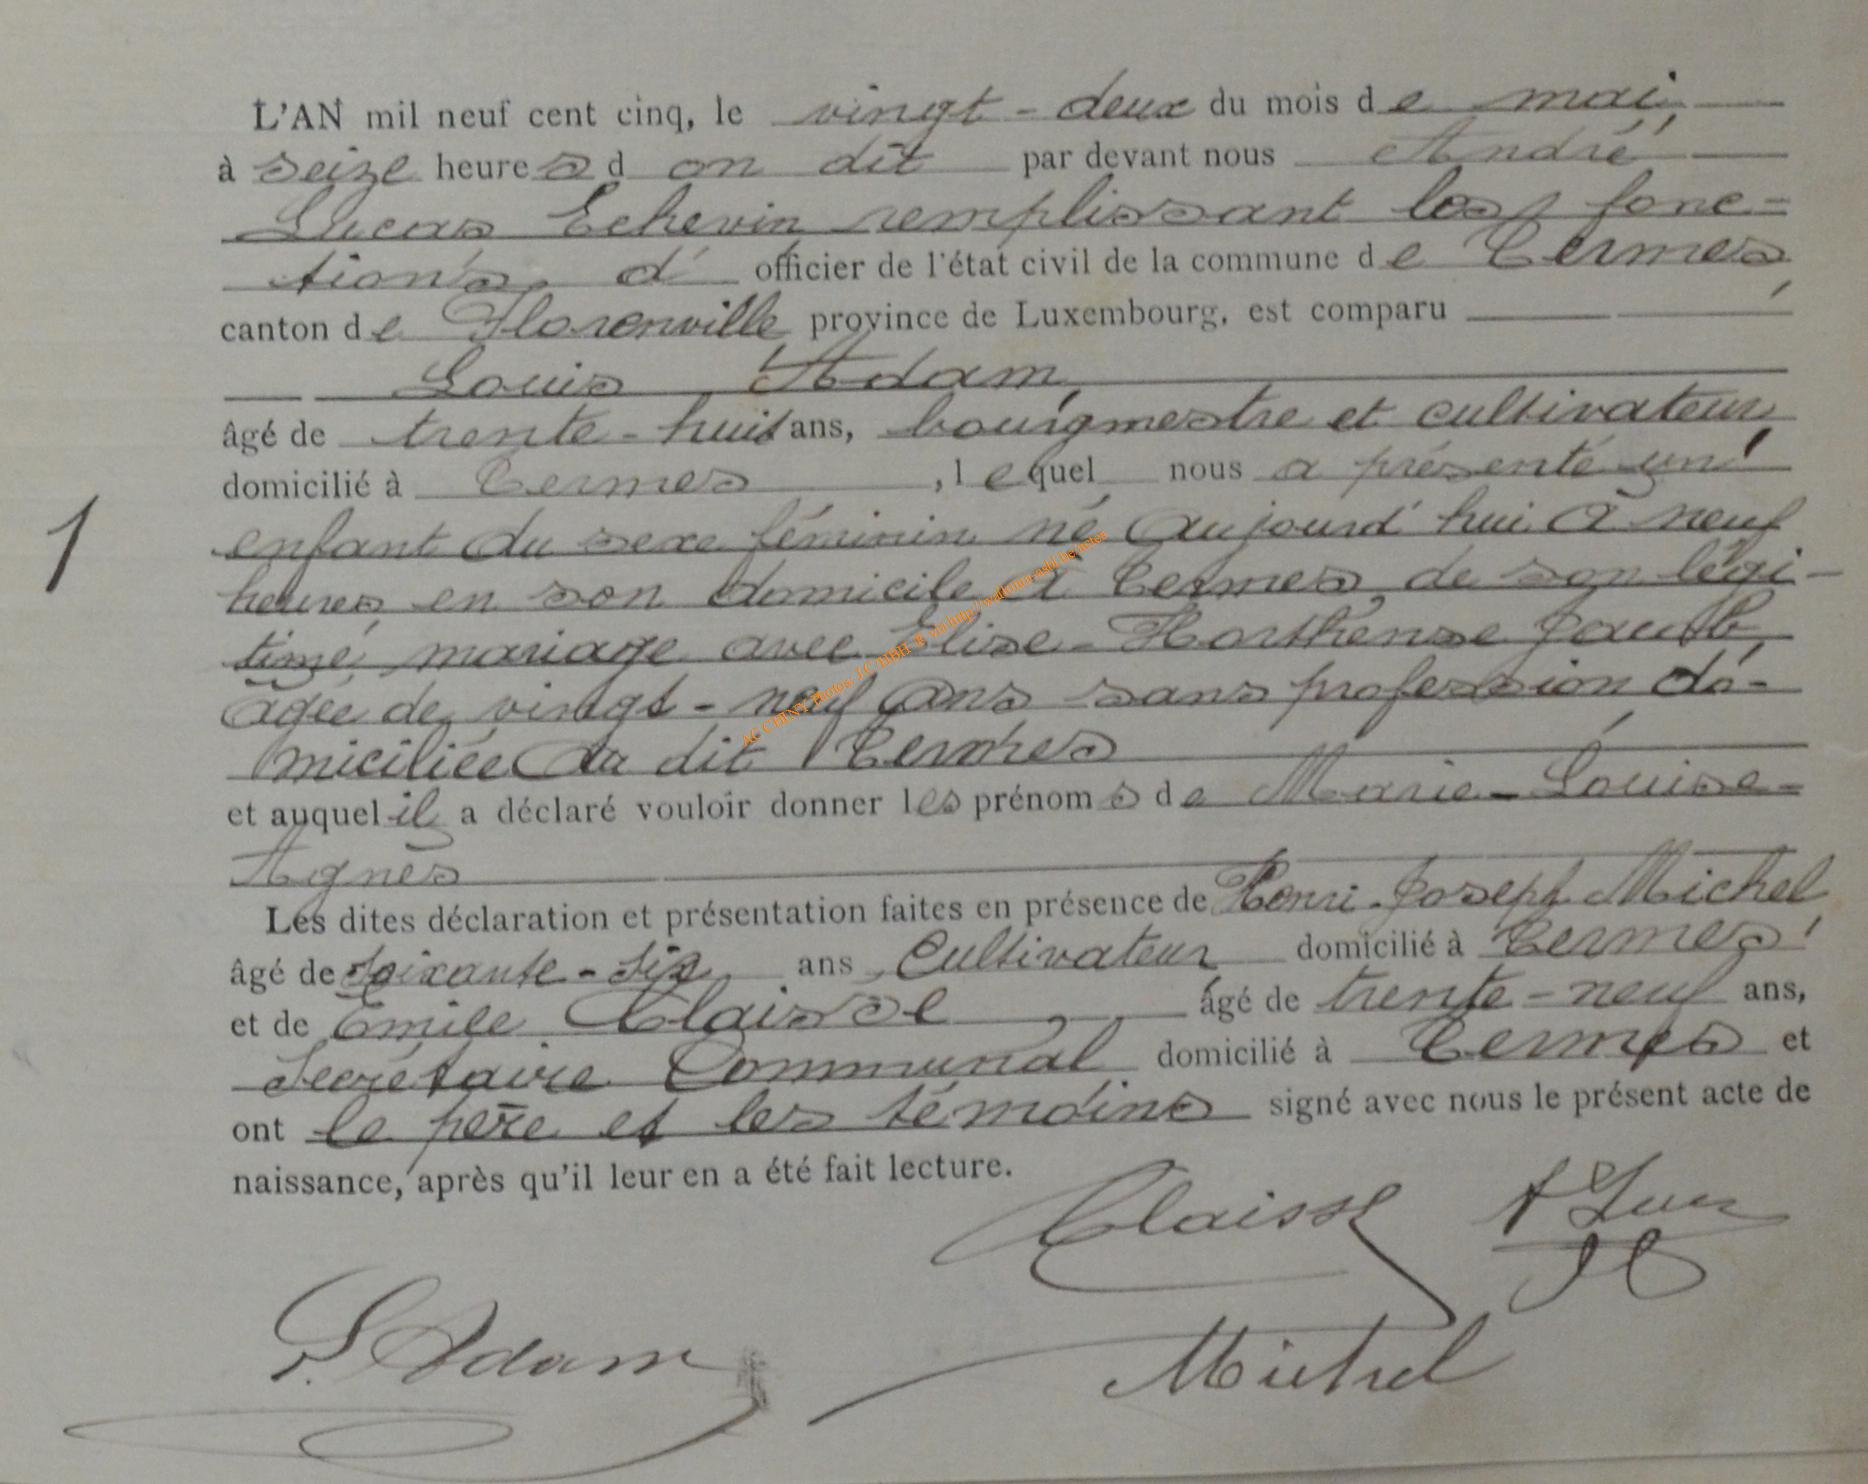 L'AN mil neuf cent cinq, le vingt-deux du mois de mai,
à seize heures d on dit par devant nous André
Lucas Echevin remplissant les fonc-
tions d' officier de l'état civil de la commune de Termes,
canton de Florenville province de Luxembourg, est comparu
Louis Adam,
âgé de trente-huit ans, bourgmestre et cultivateur,
domicilié à Termes , lequel nous a présenté un
enfant du sexe féminin né aujourd'hui à neuf
heures en son domicile à Termes, de son légi-
time mariage avec Elise-Horthense
âgée de vingt-neuf ans sans profession do-
miciliée au dit Termes
et auquel il a déclaré vouloir donner les prénoms de Marie-Louise-
Agnès
Les dites déclaration et présentation faites en présence de Henri-Joseph Michel
âgé de soixante-six ans, Cultivateur domicilié à Termes
et de Emile Claisse, âgé de trente-neuf ans,
Secrétaire Communal domicilié à Termes et
ont le père et les témoins signé avec nous le présent acte de
naissance, après qu'il leur en a été fait lecture.
1
Claisse
L. Adam
Michel